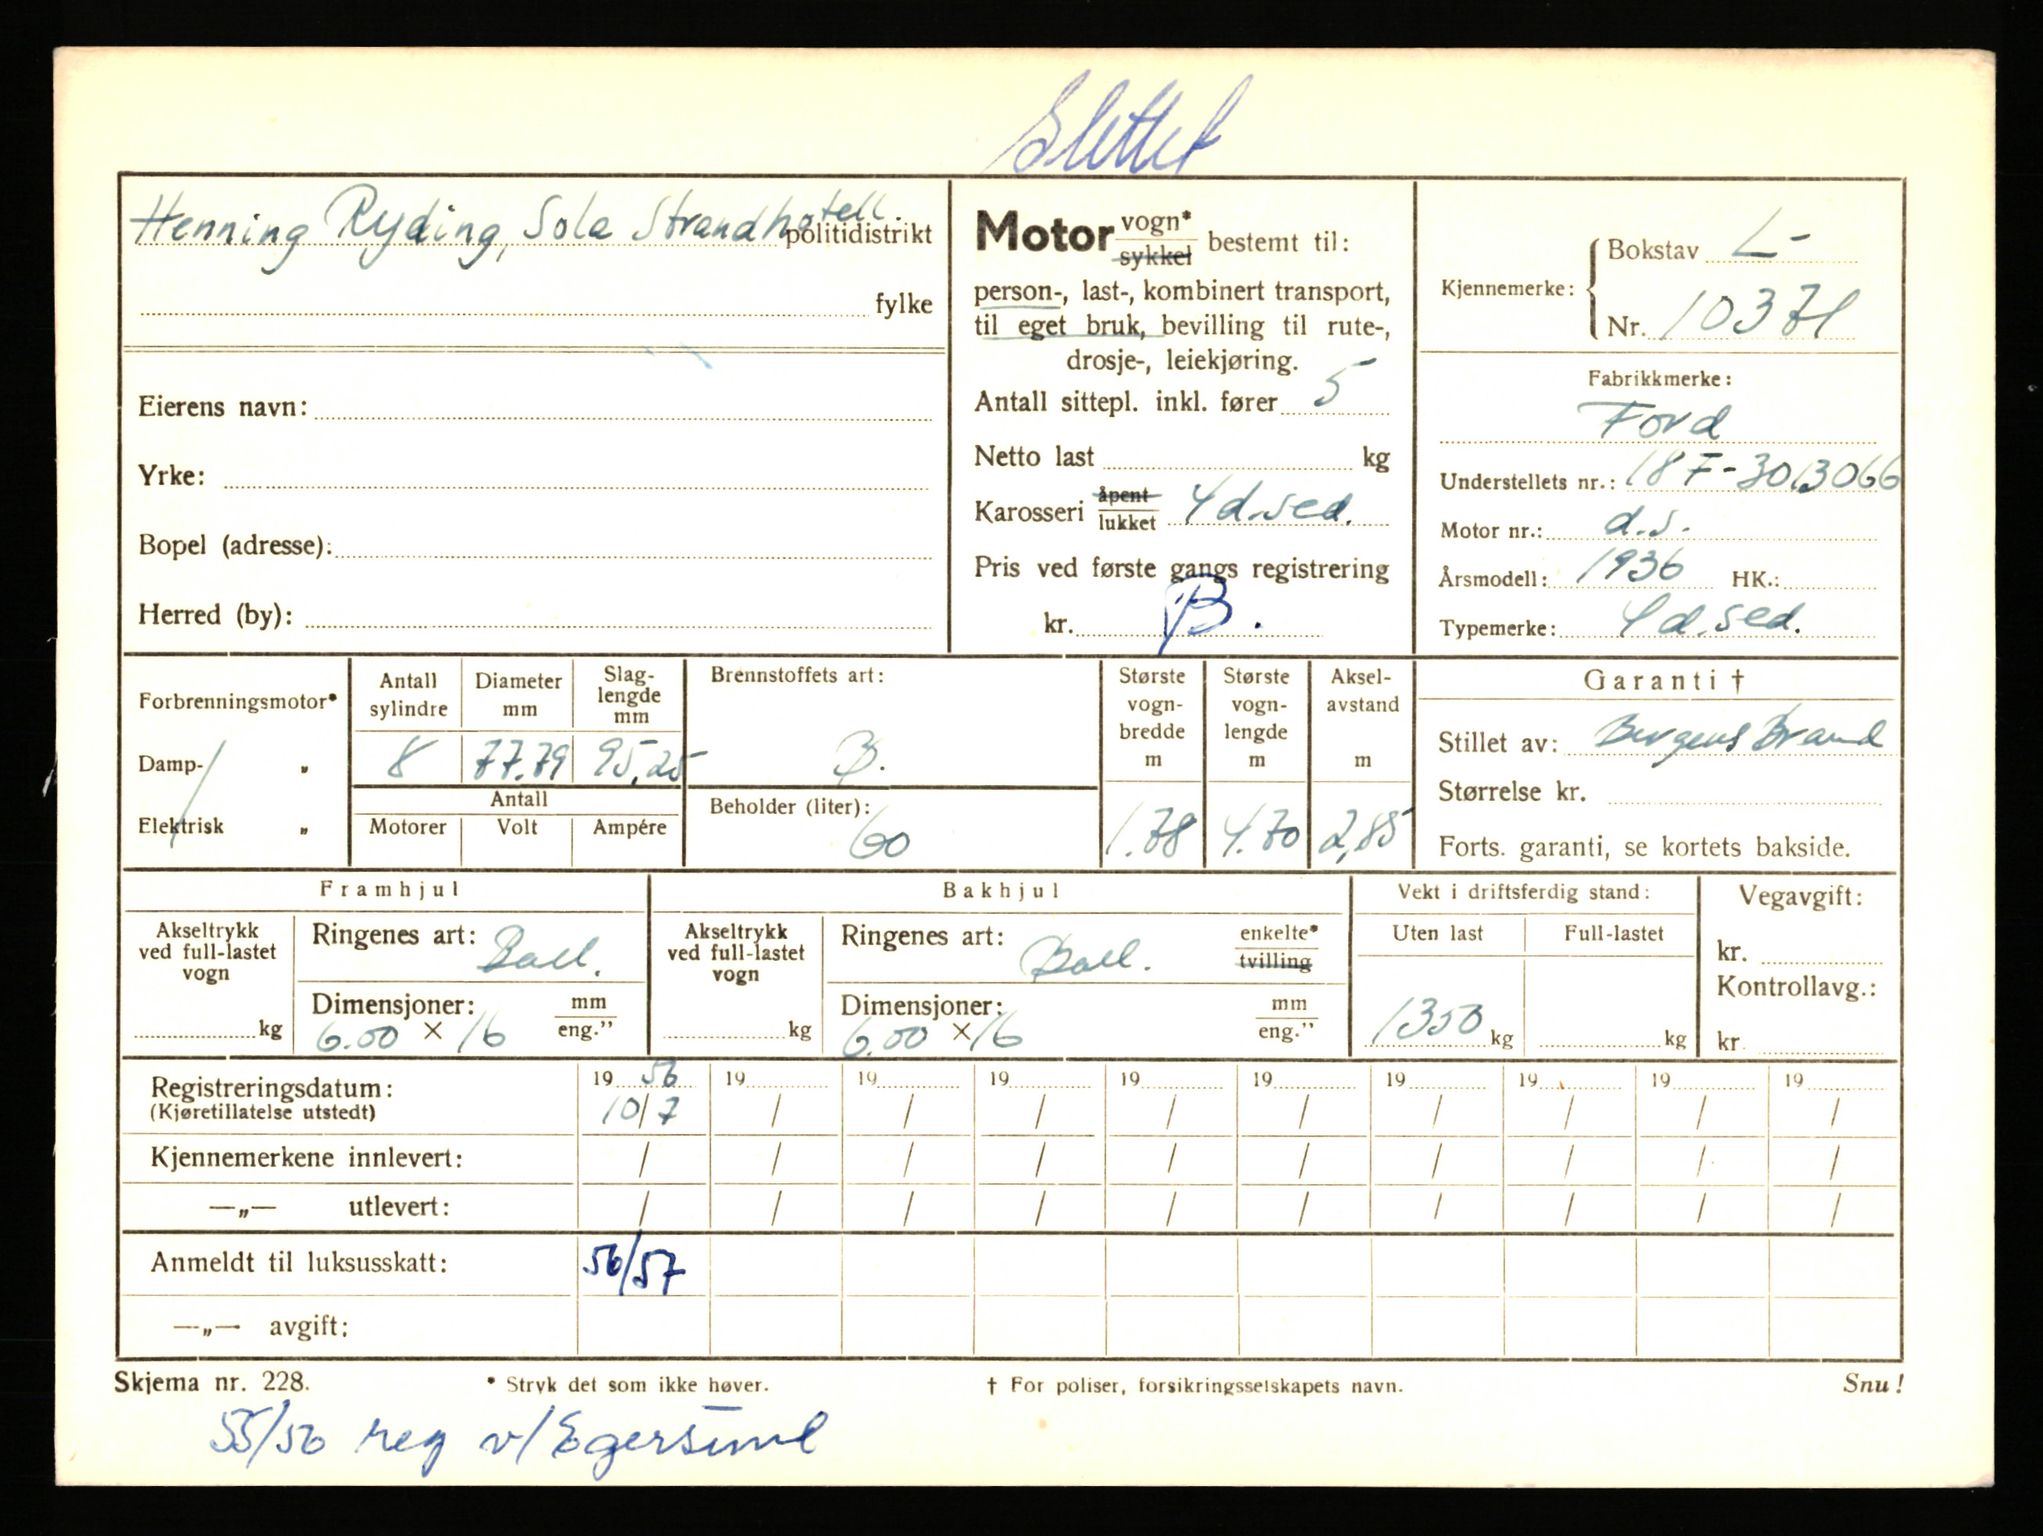 Slettet
Henning Ryding, Sola Strandhotell.
politidistrikt
fylke
Eierens navn:
Yrke:
Bopel (adresse):
Herred (by):
Motor vogn*
sykkel bestemt til:
person-, last-, kombinert transport,
til eget bruk, bevilling til rute-,
drosje-, leiekjøring.
Antall sittepl. inkl. fører 5
Netto last kg
Karosseri åpent
lukket 4 d. sed.
Pris ved første gangs registrering
kr. B.
Kjennemerke: Bokstav L-
Nr. 10371
Fabrikkmerke:
Ford
Understellets nr.: 18F-3013066
Motor nr.: d.s.
Årsmodell: 1936 HK.:
Typemerke: 4 d. sed.
Forbrenningsmotor*
Damp- „
Elektrisk „
Antall sylindre
8
Diameter mm
77.79
Slag-
lengde
mm
95,25
Antall
Motorer Volt Ampére
Brennstoffets art:
B.
Beholder (liter):
60
Største
vogn-
bredde
m
1.78
Største
vogn-
lengde
m
4.70
Aksel-
avstand
m
2,85
Garanti †
Stillet av: Bergens Brand
Størrelse kr.
Forts. garanti, se kortets bakside.
Framhjul
Akseltrykk
ved full-lastet
vogn
kg
Ringenes art: Ball.
Dimensjoner: mm
6.00 × 16 eng."
Bakhjul
Akseltrykk
ved full-lastet
vogn
kg
Ringenes art: Ball. enkelte*
tvilling
Dimensjoner: mm
6.00 × 16 eng."
Vekt i driftsferdig stand:
Uten last Full-lastet
1350 kg kg
Vegavgift:
kr.
Kontrollavg.:
kr.
Registreringsdatum: 19 56 19 19 19 19 19 19 19 19 19
(Kjøretillatelse utstedt) 10/7 / / / / / / / / /
Kjennemerkene innlevert: / / / / / / / / / /
—„— utlevert: / / / / / / / / / /
Anmeldt til luksusskatt: 56/57
—„— avgift:
Skjema nr. 228. * Stryk det som ikke høver. † For poliser, forsikringsselskapets navn. Snu!
55/56 reg v/Egersund